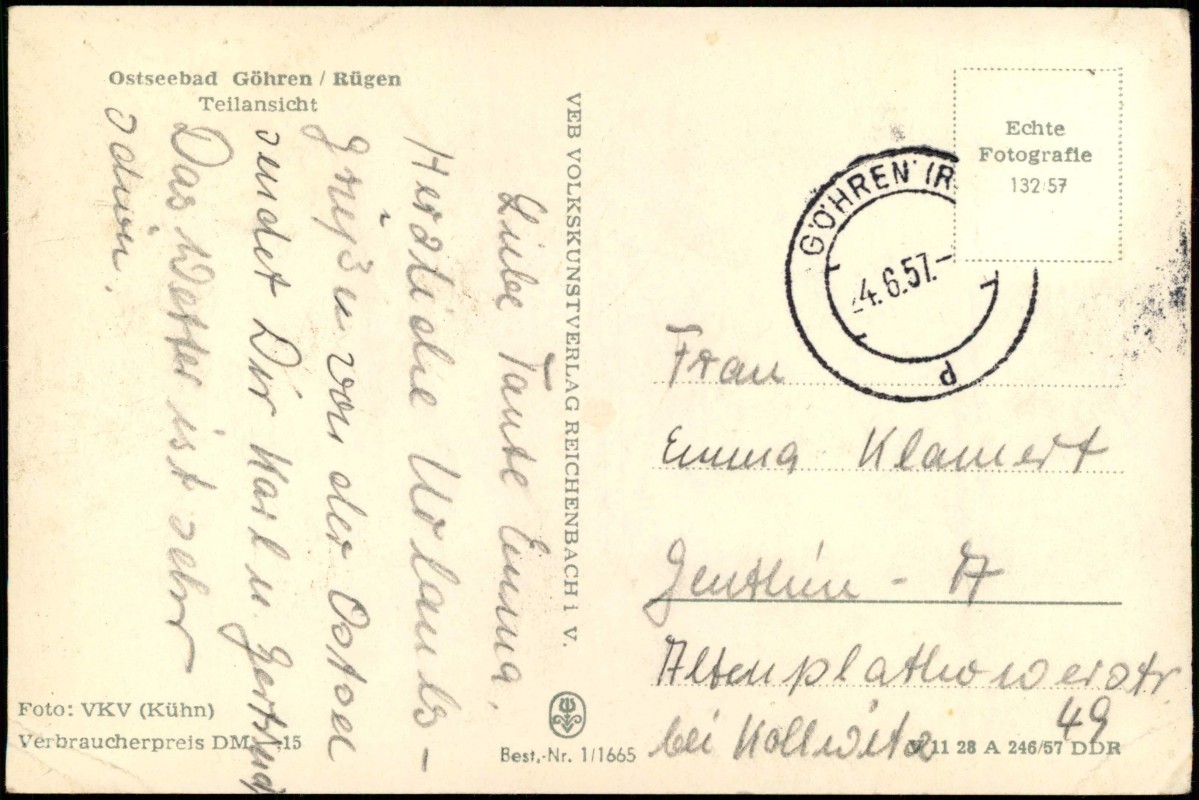 Ostseebad Göhren / Rügen
Teilansicht
Liebe Tante Emma,
Herzliche Urlaubs-
grüße von der Ostsee
sendet Dir Karl u. Gertrud
Das Wetter ist sehr
schön.
Foto: VKV (Kühn)
Verbraucherpreis DM -15
VEB VOLKSKUNSTVERLAG REICHENBACH i V.
Best.-Nr. 1/1665
Echte
Fotografie
132/57
GÖHREN (R
4.6.57.-
d
Frau
Emma Klamert
Genthin - A
Altenplathowerstr
49
bei Kollwitz
V 11 28 A 246/57 DDR